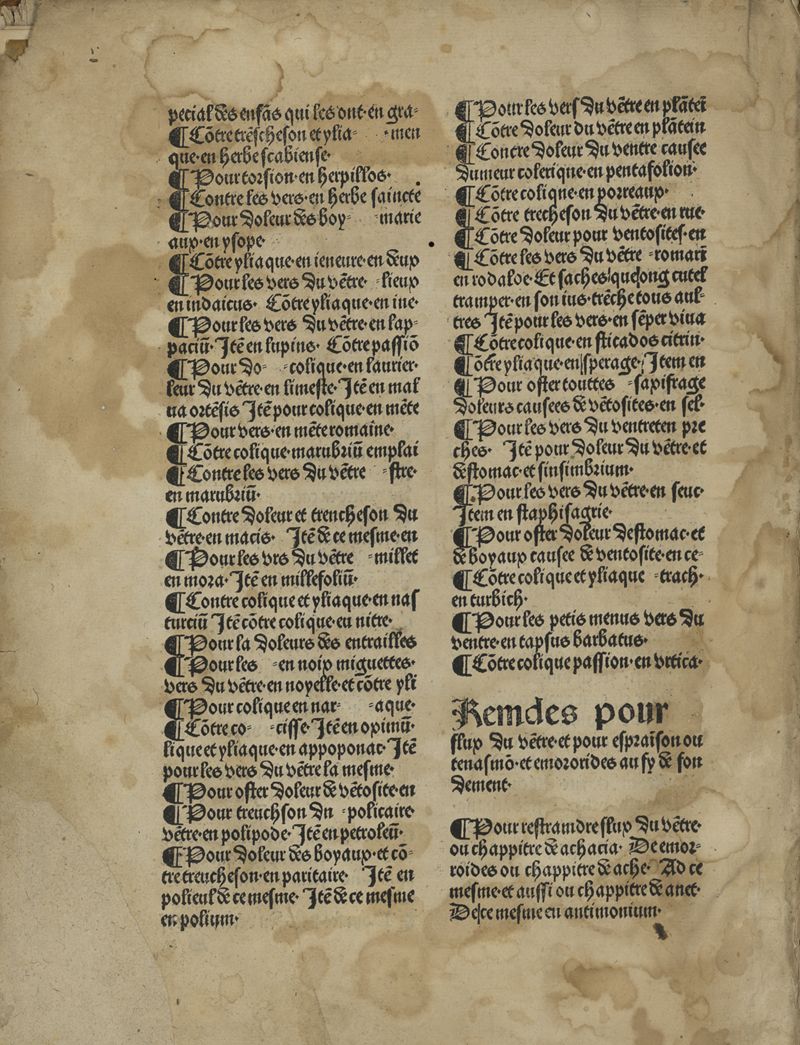 pecial des enfãs qui les ont·en gra⸗
¶ Cõtre trẽscheson et ylia⸗ ⸗men
que·en herbe scabiense·
¶ Pour torsion·en herpillos·
¶ Contre les vers·en herbe saincte
¶ Pour doleur des boy⸗ ⸗marie
aup·en ysope·
¶ Cõtre yliaque·en ieneure·en deup
¶ Pour les vers du vẽtre· ⸗lieup
en indaicus· Cõtre yliaque·en ine·
¶ Pour les vers du vẽtre·en lap⸗
paciũ· Itẽ en lupins· Cõtre passiõ
¶ Pour do⸗ ⸗colique·en laurier·
leur du vẽtre·en limeste·Itẽ en mal
ua ortẽsis Itẽ pour colique·en mẽte
¶ Pour vers·en mẽte romaine·
¶ Cõtre colique·marubriũ emplai
¶ Contre les vers du vẽtre ⸗stre·
en marubriũ·
¶ Contre doleur et trencheson du
vẽtre·en macis· Itẽ de ce mesme·en
¶ Pour les vrs du vẽtre ⸗millet
en mora·Itẽ en millefoliũ·
¶ Contre colique et yliaque·en nas
turciũ Itẽ cõtre colique·en nitre·
¶ Pour la doleurs des entrailles
¶ Pour les ⸗en noip miguettes·
vers du vẽtre·en noyelle·et cõtre yli
¶ Pour colique en nar⸗ ⸗aque·
¶ Cõtre co⸗ ⸗cisse·Itẽ en opimũ·
lique et yliaque·en appoponac·Itẽ
pour les vers du vẽtre la mesme·
¶ Pour oster doleur de vẽtosite·en
¶ Pour treuchson du ⸗policaire·
vẽtre·en polipode·Itẽ en petroleũ·
¶ Pour doleur des boyaup·et cõ⸗
tre treucheson·en paritaire· Itẽ en
polieul de ce mesme· Itẽ de ce mesme
en polium·
¶ Pour les vers du vẽtre en plãtei
¶ Cõtre doleur du vẽtre en plãtein
¶ Contre doleur du ventre causee
dumeur colerique·en pentafolion·
¶ Cõtre colique·en porreaup·
¶ Cõtre trecheson du vẽtre·en rue·
¶ Cõtre doleur pour ventosites·en
¶ Cõtre les vers du vẽtre ⸗romari
en rodaloe·Et saches quelong cutel
tramper·en son ius·trẽche tous aul⸗
tres Itẽ pour les vers·en sẽper viua
¶ Cõtre colique·en sticados citrin·
¶ Cõtre yliaque·en sperage·Item en
¶ Pour oster touttes ⸗sapifrage
doleurs causees de vẽtosites·en sel·
¶ Pour les vers du ventreten pre
ches· Itẽ pour doleur du vẽtre·et
destomac·et sinsimbrium·
¶ Pour les vers du vẽtre·en seuc·
Item en staphisagrie·
¶ Pour oster doleur destomac·et
de boyaup causee de ventosite·en ce⸗
¶ Cõtre colique et yliaque ⸗trach·
en turbich·
¶ Pour les petis menus vers du
ventre·en tapsus barbatus·
¶ Cõtre colique passion·en vrtica·
Remdes pour
flup du vẽtre·et pour espraĩson ou
tenasmõ·et emororides au fy de fon
dement·
¶ Pour restramdre flup du vẽtre·
ou chappitre de achacia· De emor⸗
roides ou chappitre de ache· Ad ce
mesme·et aussi ou chappitre de anet·
De ce mesme en antimonium·